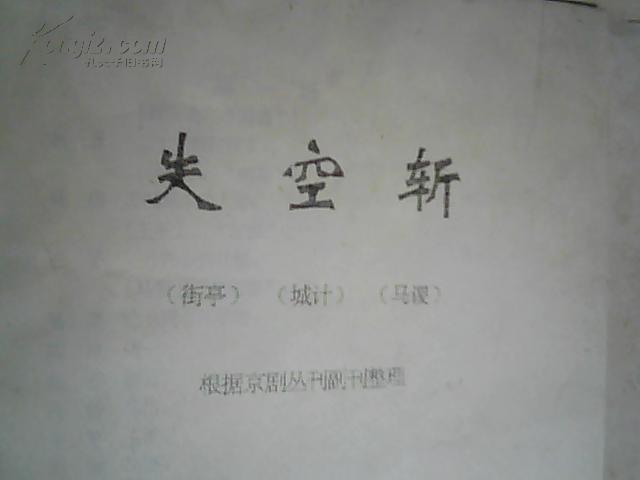 Kongfz.com
孔夫子旧书网
失 空 斩
（街亭） （城计） （马谡）
根据京剧丛刊剧刊整理